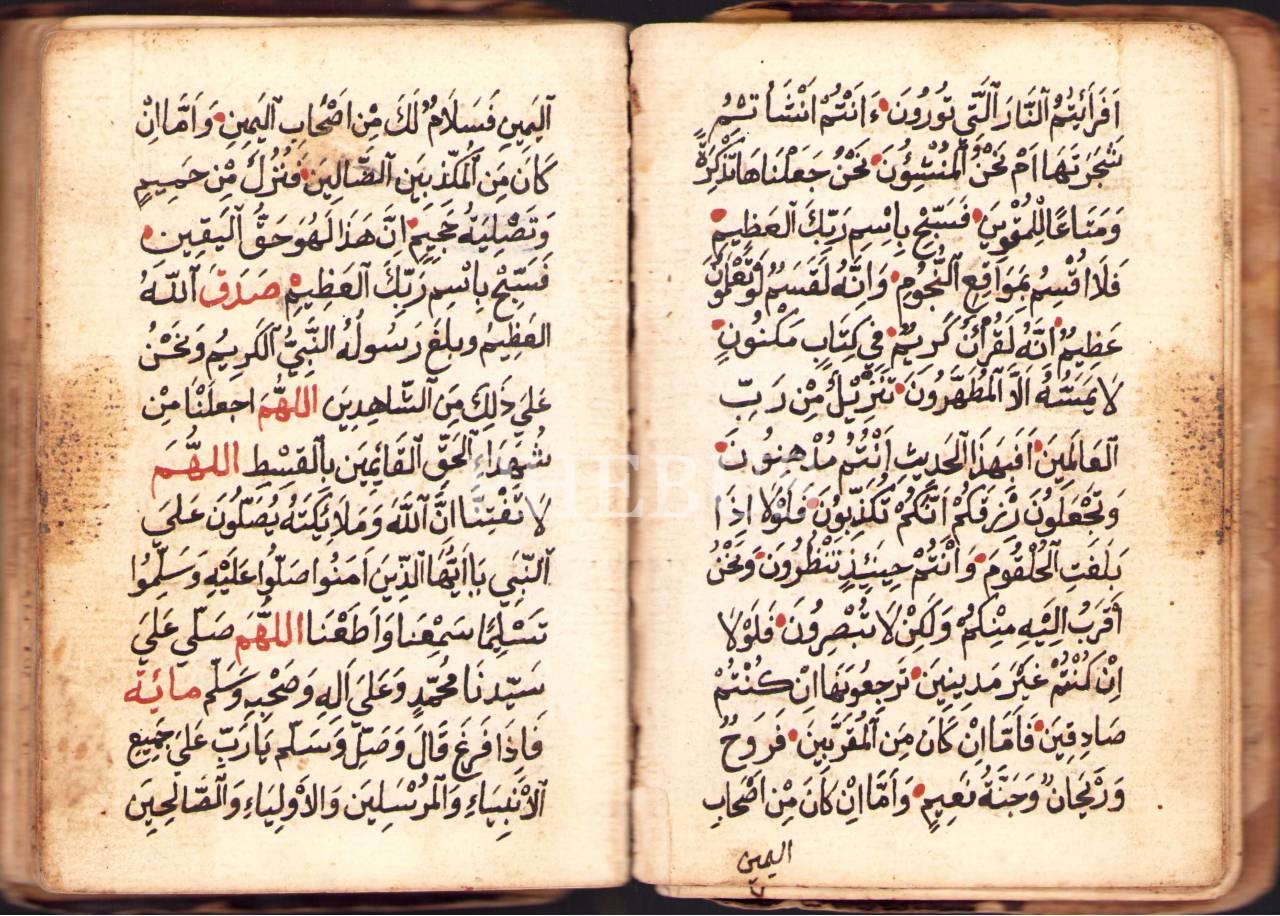 اَفَرَاَيْتُمُ النَّارَ الَّتِي تُورُونَ ءَاَنْتُمْ اَنْشَأتُمْ
شَجَرَتَهَا اَمْ نَحْنُ الْمُنْشِؤُنَ نَحْنُ جَعَلْنَاهَا تَذْكِرَةً
وَمَتَاعًا لِلْمُقْوِينَ فَسَبِّحْ بِاسْمِ رَبِّكَ العَظِيمِ
فَلَا اُقْسِمُ بِمَوَاقِعِ النُّجُومِ وَاِنَّهُ لَقَسَمٌ لَوْ تَعْلَمُونَ
عَظِيمٌ اِنَّهُ لَقُرْأَنٌ كَرِيمٌ فِي كِتَابٍ مَكْنُونٍ
لَا يَمَسُّهُ اِلَّا المُطَهَّرُونَ تَنْزِيلٌ مِنْ رَبِّ
العَالَمِينَ اَفَبِهَذَا الحَدِيثِ اَنْتُمْ مُدْهِنُونَ
وَتَجْعَلُونَ رِزْقَكُمْ اَنَّكُمْ تُكَذِّبُونَ فَلَوْلَا اِذَا
بَلَغَتِ الْحُلْقُومَ وَاَنْتُمْ حِينَئِذٍ تَنْظُرُونَ وَنَحْنُ
اَقْرَبُ اِلَيْهِ مِنْكُمْ وَلَكِنْ لَا تُبْصِرُونَ فَلَوْلَا
اِنْ كُنْتُمْ غَيْرَ مَدِينِينَ تَرْجِعُونَهَا اِنْ كُنْتُمْ
صَادِقِينَ فَاَمَّا اِنْ كَانَ مِنَ الْمُقَرَّبِينَ فَرَوْحٌ
وَرَيْحَانٌ وَجَنَّةُ نَعِيمٍ وَاَمَّا اِنْ كَانَ مِنْ اَصْحَابِ
اليمين
اليَمِينِ فَسَلَامٌ لَكَ مِنْ اَصْحَابِ اليَمِينِ وَاَمَّا اِنْ
كَانَ مِنَ الْمُكَذِّبِينَ الضَّالِينَ فَنُزُلٌ مِنْ حَمِيمٍ
وَتَصْلِيَةُ جَحِيمٍ اِنَّ هَذَا لَهُوَ حَقُّ اليَقِينِ
فَسَبِّحْ بِاسْمِ رَبِّكَ العَظِيمِ صَدَقَ اللَّهُ
العَظِيمُ وبلغَ رَسُولُهُ النَّبِيُّ الكَرِيمُ وَنَحْنُ
عَلَى ذَلِكَ مِنَ الشَّاهِدِينَ اللهُمَّ اجعَلْنَا مِنْ
شُهَدَاءِ الحَقِّ القَائِمِينَ بِالقِسْطِ اللهُمَّ
لَا تَفْتِنَّا اِنَّ اللَّهَ وَمَلَائِكَتَهُ يُصَلُّونَ عَلَى
النَّبِي يَا اَيُّهَا الَّذِينَ اَمَنُوا صَلُّوا عَلَيْهِ وَسَلِّمُوا
تَسْلِيمًا سَمِعْنَا وَاَطَعْنَا اللهُمَّ صَلِّي عَلَى
سَيِّدِنَا مُحَمَّدٍ وَعَلَى اَلِهِ وَصَحْبِهِ وَسَلِّم مائة
فَاِذَا فَرَغَ قَالَ وَصَلِّ وَسَلِّم يَارَبِّ عَلَى جَمِيعِ
الاَنْبِيَاءِ وَالْمُرْسَلِينَ وَالاَوْلِيَاءِ وَالصَّالِحِينَ